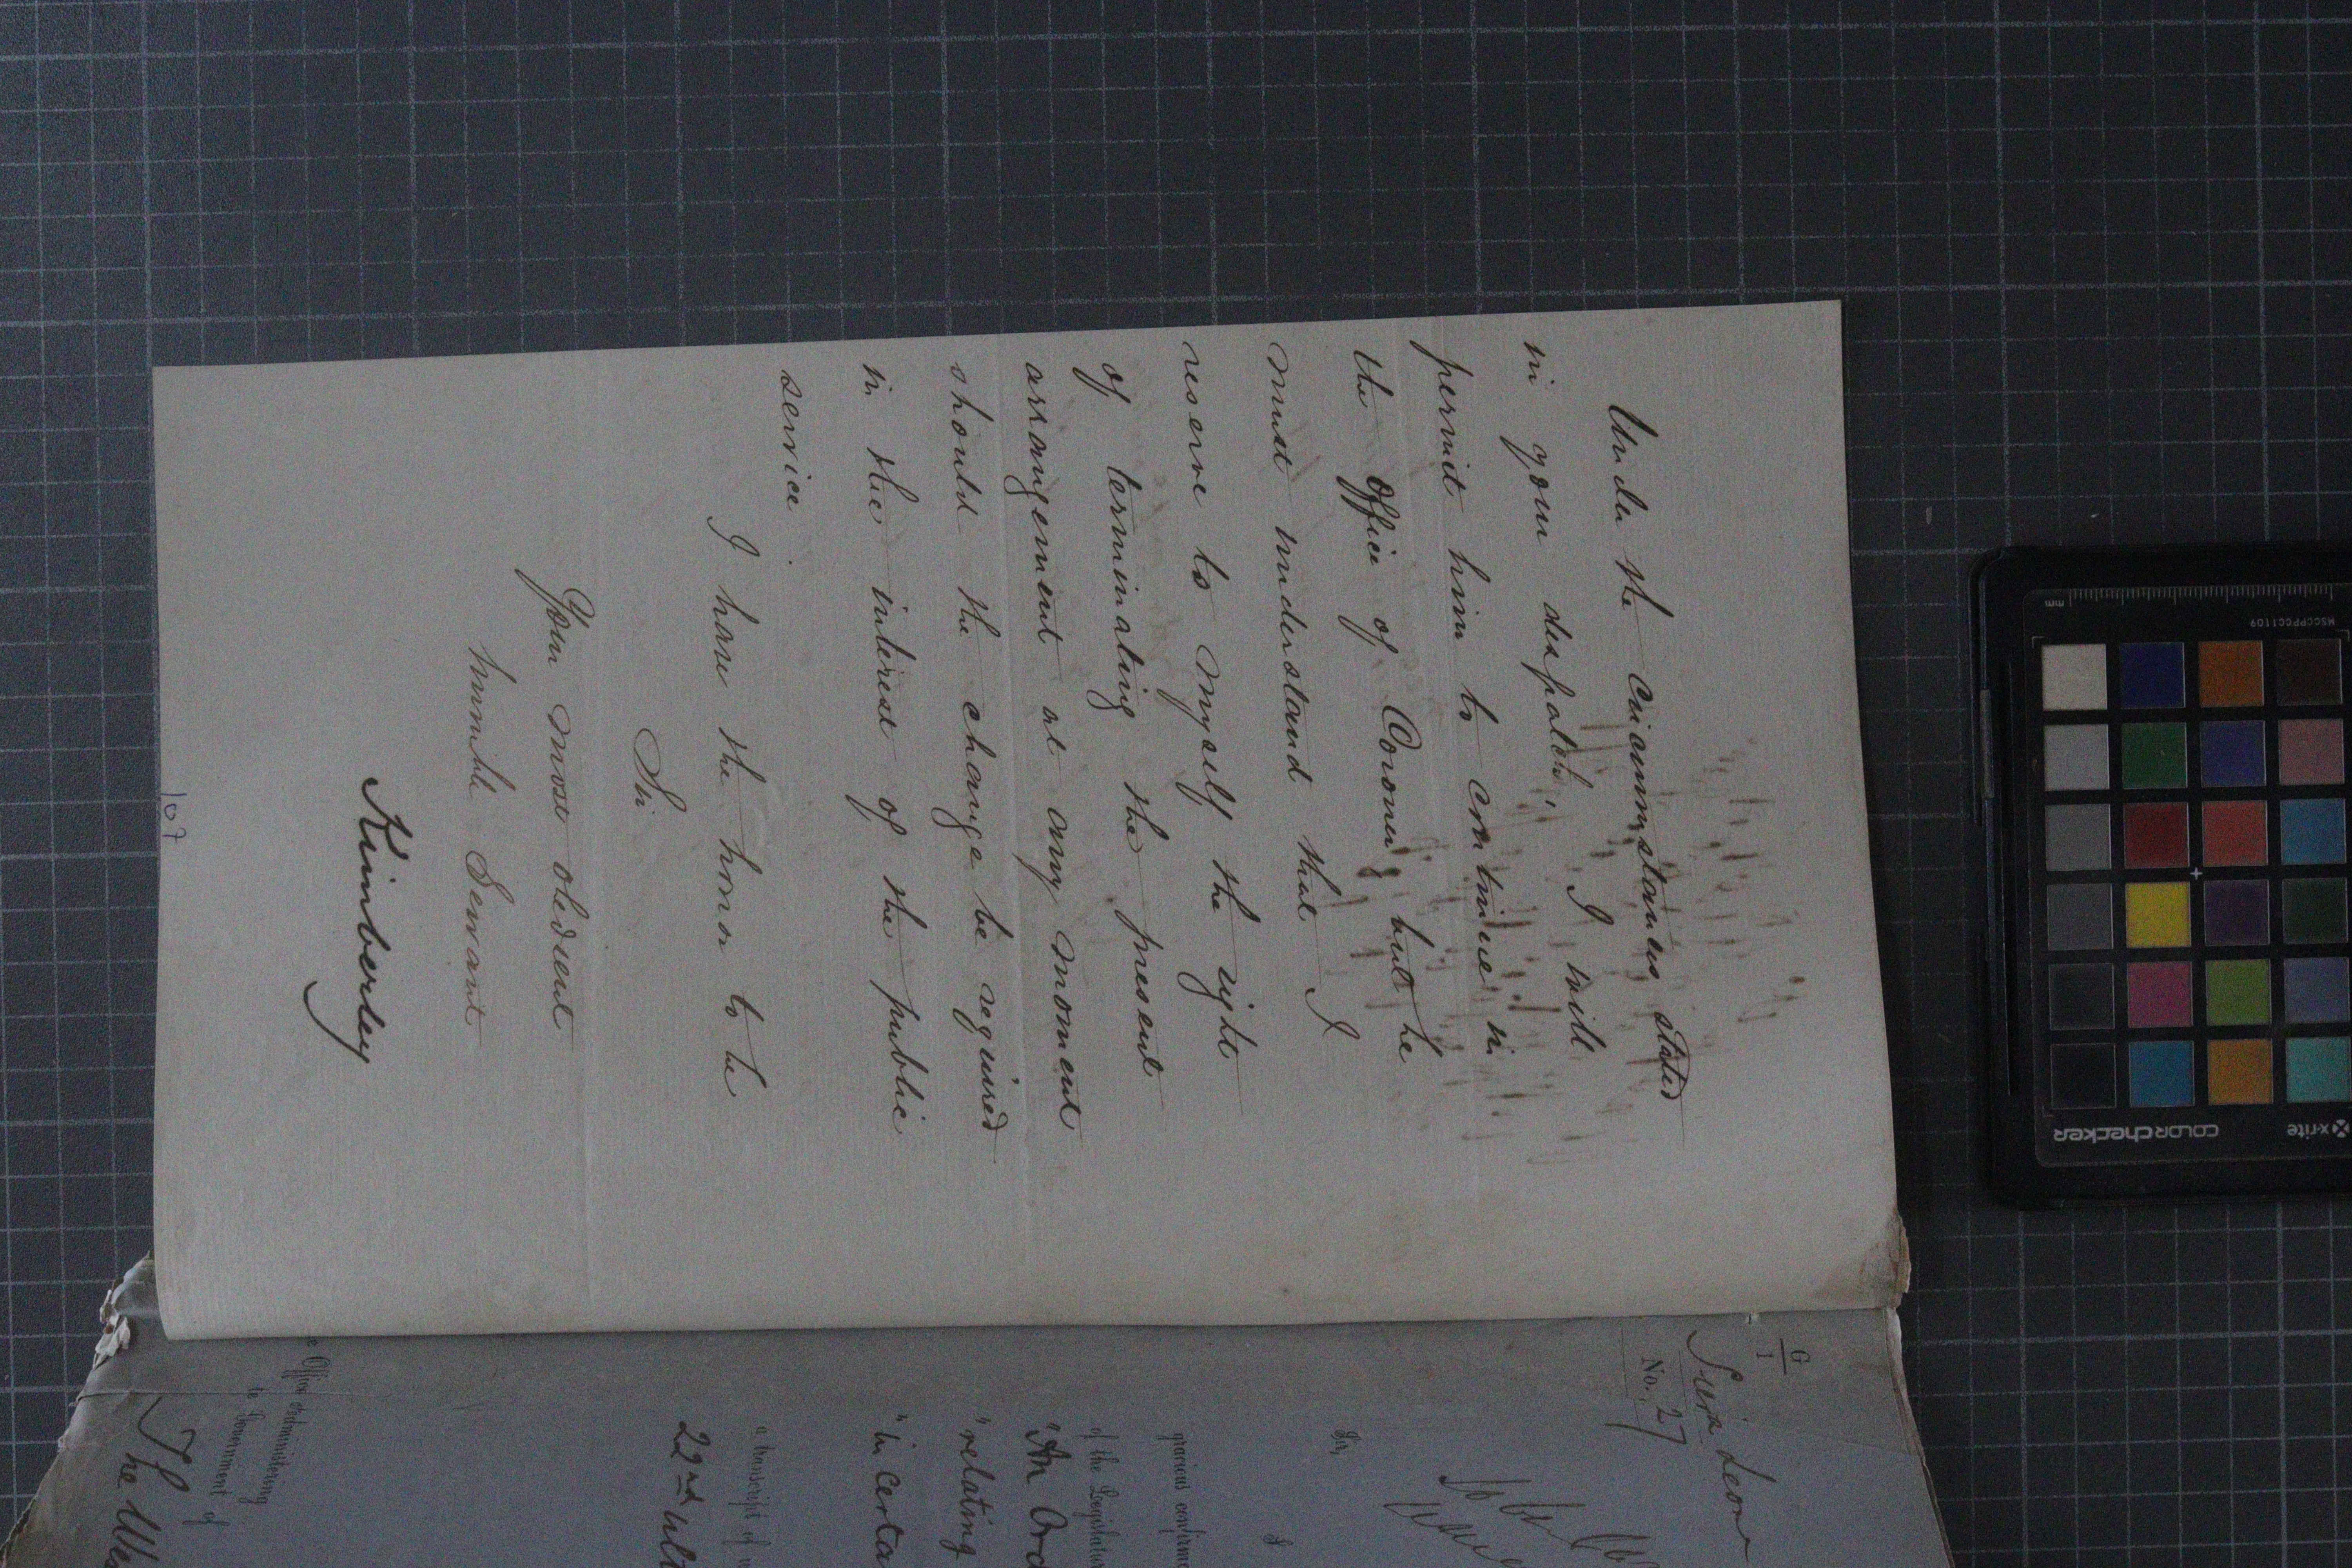 Under the circumstances stated
in your despatch, I will
permit him to continue in
the Office of Coroner, but he
must understand that I
reserve to myself the right
of terminating the present
arrangement at any moment
should the change be required
in the interest of the public
service.
I have the honor to be
Sir
Your most obedient
humble Servant
Kimberley
107
G
1
Sierra Leone
No. 27
Sir,
I
gracious confirm
of the Legislatur
"An Ord
"relating
"in certa
a transcript of
22nd ult
e Officer administering
te Government of
The We
mm
MSCCPPCC1109
x-rite
colorchecker